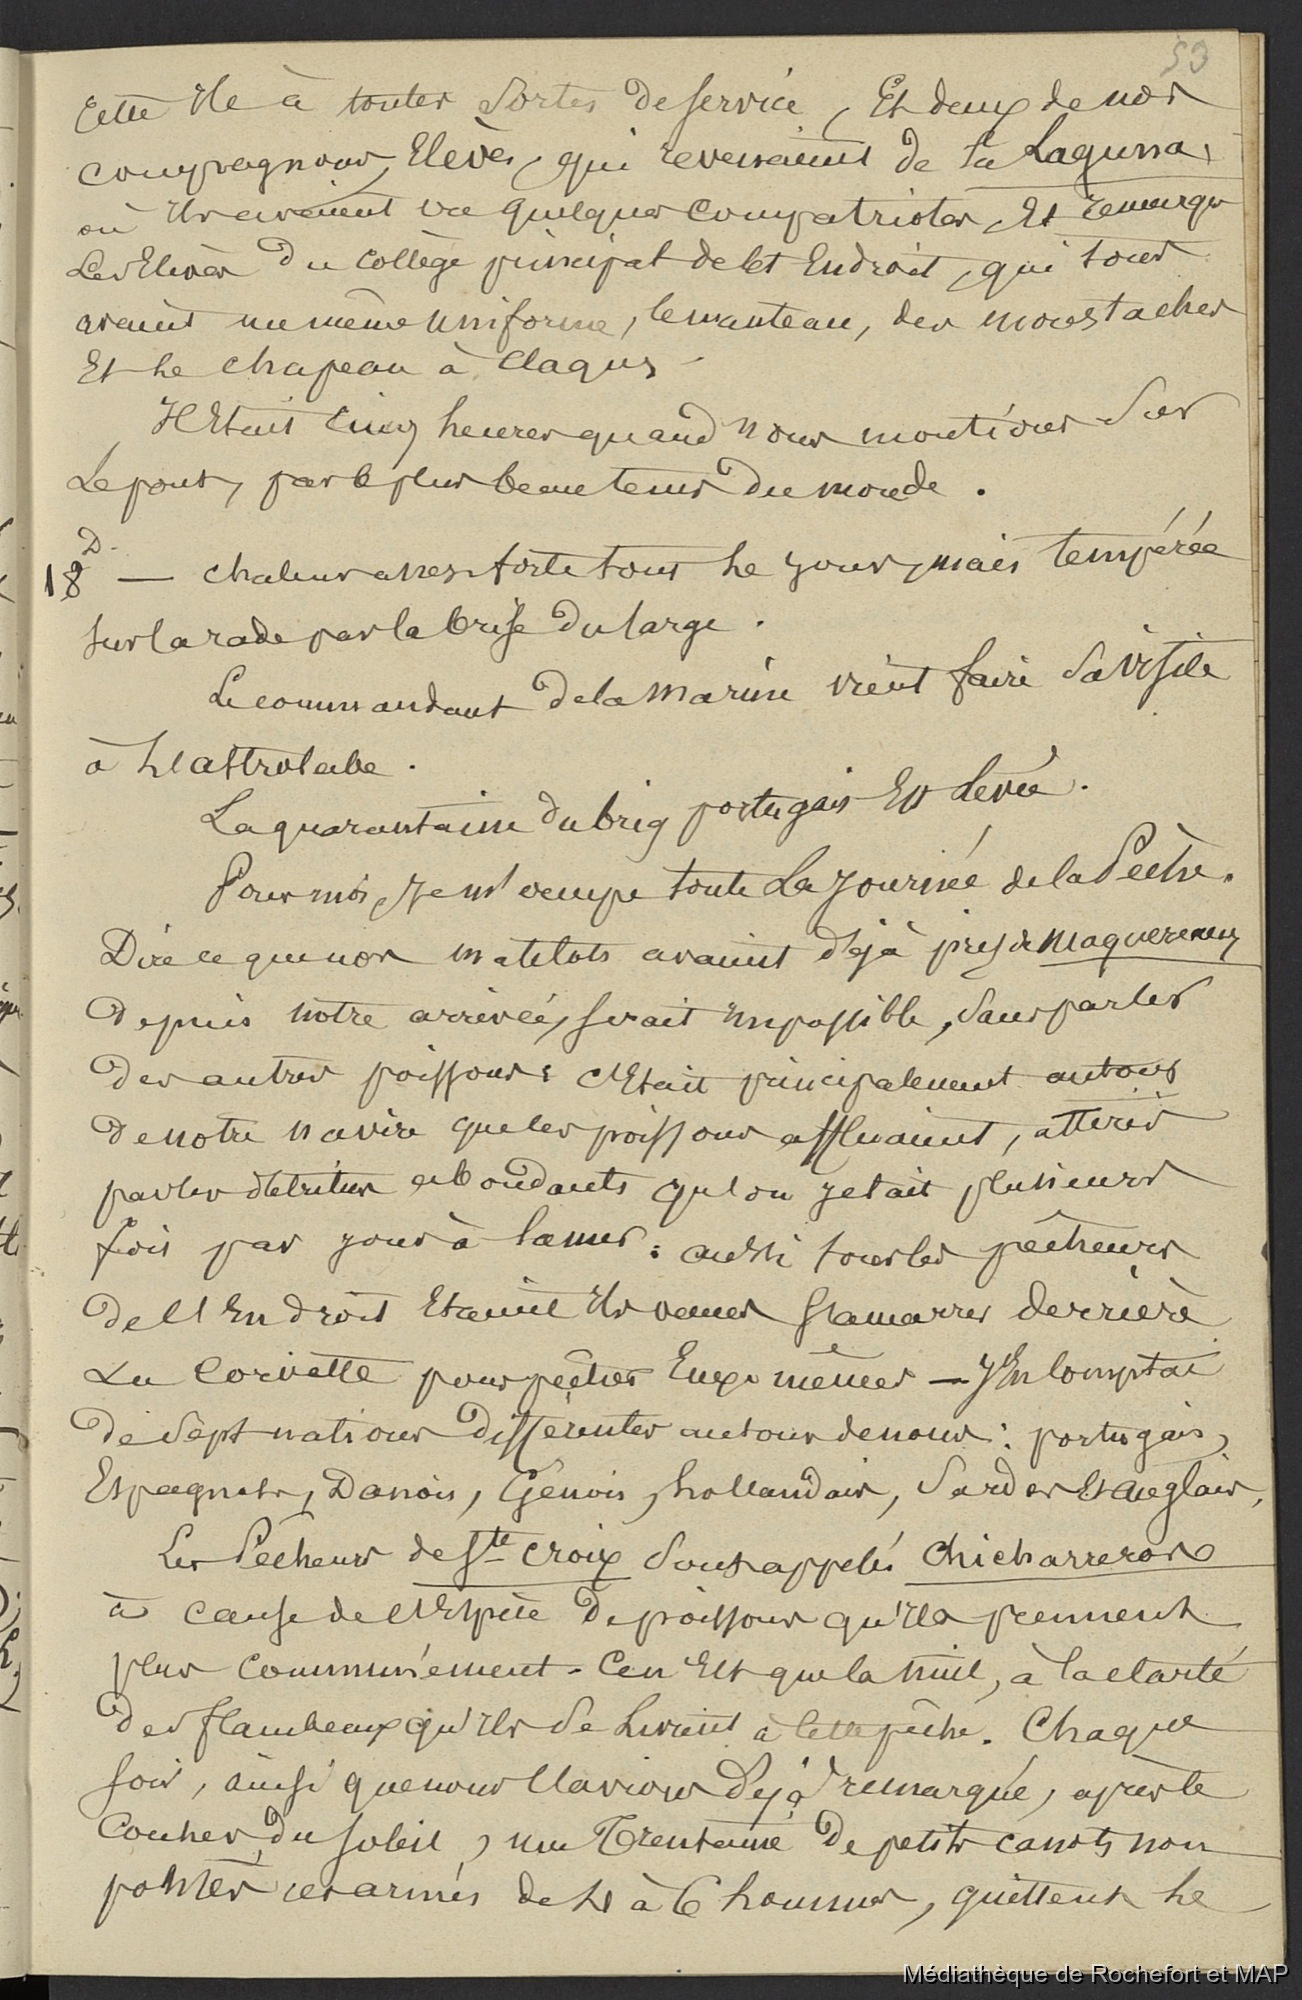 53
cette Ile à toutes Sortes de service, Et deux de nos
compagnons, Elèves, qui revenaient de la Laguna,
où Ils avaient vu quelques compatriotes, Et remarqu
Les Elèves du collège principal de cet Endroit, qui tous
avaient un même uniforme, le manteau, des moustaches
Et le chapeau à claques.
Il Etait cinq heures quand nous montions Sur
Le pont, par le plus beau tems du monde.
D.
18 — chaleur assez forte tout le jour, mais tempérée
sur la rade par la brise du large.
Le commandant de la marine vient faire Sa visite
à L'astrolabe.
La quarantaine du brig portugais Est Levée.
Pour moi, Je m'occupe toute La Journée de la Pêche.
Dire ce que nos matelots avaient déjà pris de maquereaux
depuis notre arrivée, serait Impossible, Sans parler
des autres poissons: c'Etait principalement autour
de notre navire que les poissons affluaient, attirés
par les détritus abondants qu'on jetait plusieurs
fois par jour à la mer: aussi tous les pêcheurs
de l'Endroit Etaient Ils venus s'amarrer derrière
La Corvette pour pêcher Eux-mêmes — J'En comptai
de Sept nations différentes autour de nous: portugais,
Espagnols, Danois, Génois, hollandais, Sardes Et anglais.
Les Pêcheurs de Ste Croix Sont appelés Chicharreros
à cause de l'Espèce de poissons qu'Ils prennent
plus communément. Ce n'Est que la nuit, à la clarté
des flambeaux qu'Ils se Livrent à cette pêche. Chaque
soir, ainsi que nous l'avions déjà remarqué, après le
Coucher du soleil, une Trentaine de petits canots non
pontés et armés de 4 à 6 hommes, quittent le
Médiathèque de Rochefort et MAP